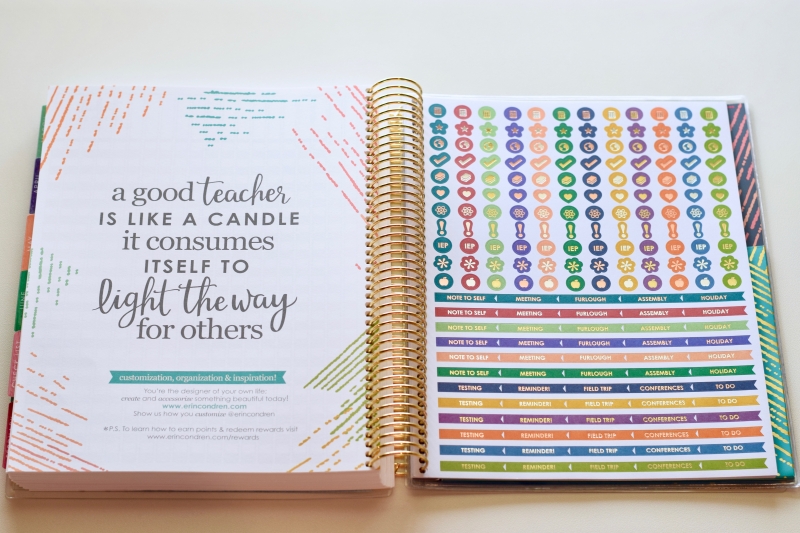 a good teacher
IS LIKE A CANDLE
it consumes
ITSELF TO
light the way
for others
customization, organization & inspiration!
You're the designer of your own life;
create and accessorize something beautiful today!
www.erincondren.com
Show us how you customize @erincondren
*P.S. To learn how to earn points & redeem rewards visit
www.erincondren.com/rewards
IEP IEP IEP IEP IEP IEP IEP IEP IEP IEP IEP IEP
NOTE TO SELF MEETING FURLOUGH ASSEMBLY HOLIDAY
NOTE TO SELF MEETING FURLOUGH ASSEMBLY HOLIDAY
NOTE TO SELF MEETING FURLOUGH ASSEMBLY HOLIDAY
NOTE TO SELF MEETING FURLOUGH ASSEMBLY HOLIDAY
NOTE TO SELF MEETING FURLOUGH ASSEMBLY HOLIDAY
NOTE TO SELF MEETING FURLOUGH ASSEMBLY HOLIDAY
TESTING REMINDER! FIELD TRIP CONFERENCES TO DO
TESTING REMINDER! FIELD TRIP CONFERENCES TO DO
TESTING REMINDER! FIELD TRIP CONFERENCES TO DO
TESTING REMINDER! FIELD TRIP CONFERENCES TO DO
TESTING REMINDER! FIELD TRIP CONFERENCES TO DO
TESTING REMINDER! FIELD TRIP CONFERENCES TO DO